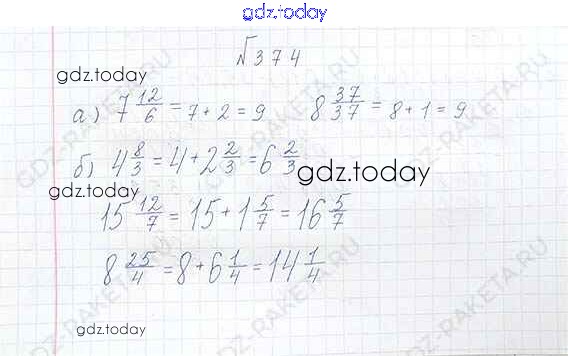 gdz.today
№374
gdz.today
а) 7 12/6 = 7+2 = 9 8 37/37 = 8+1 = 9
б) 4 8/3 = 4+2 2/3 = 6 2/3
gdz.today
gdz.today
15 12/7 = 15+1 5/7 = 16 5/7
8 25/4 = 8+6 1/4 = 14 1/4
gdz.today
GDZ-RAKETA.RU